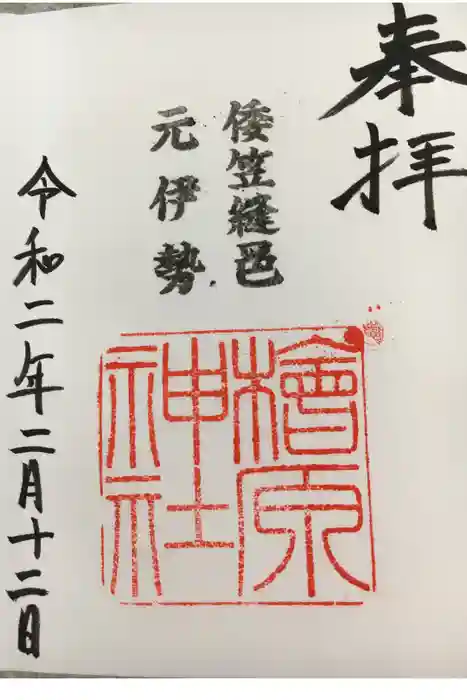 奉拝
倭笠縫邑
元伊勢
檜原
神社
令和二年二月十二日